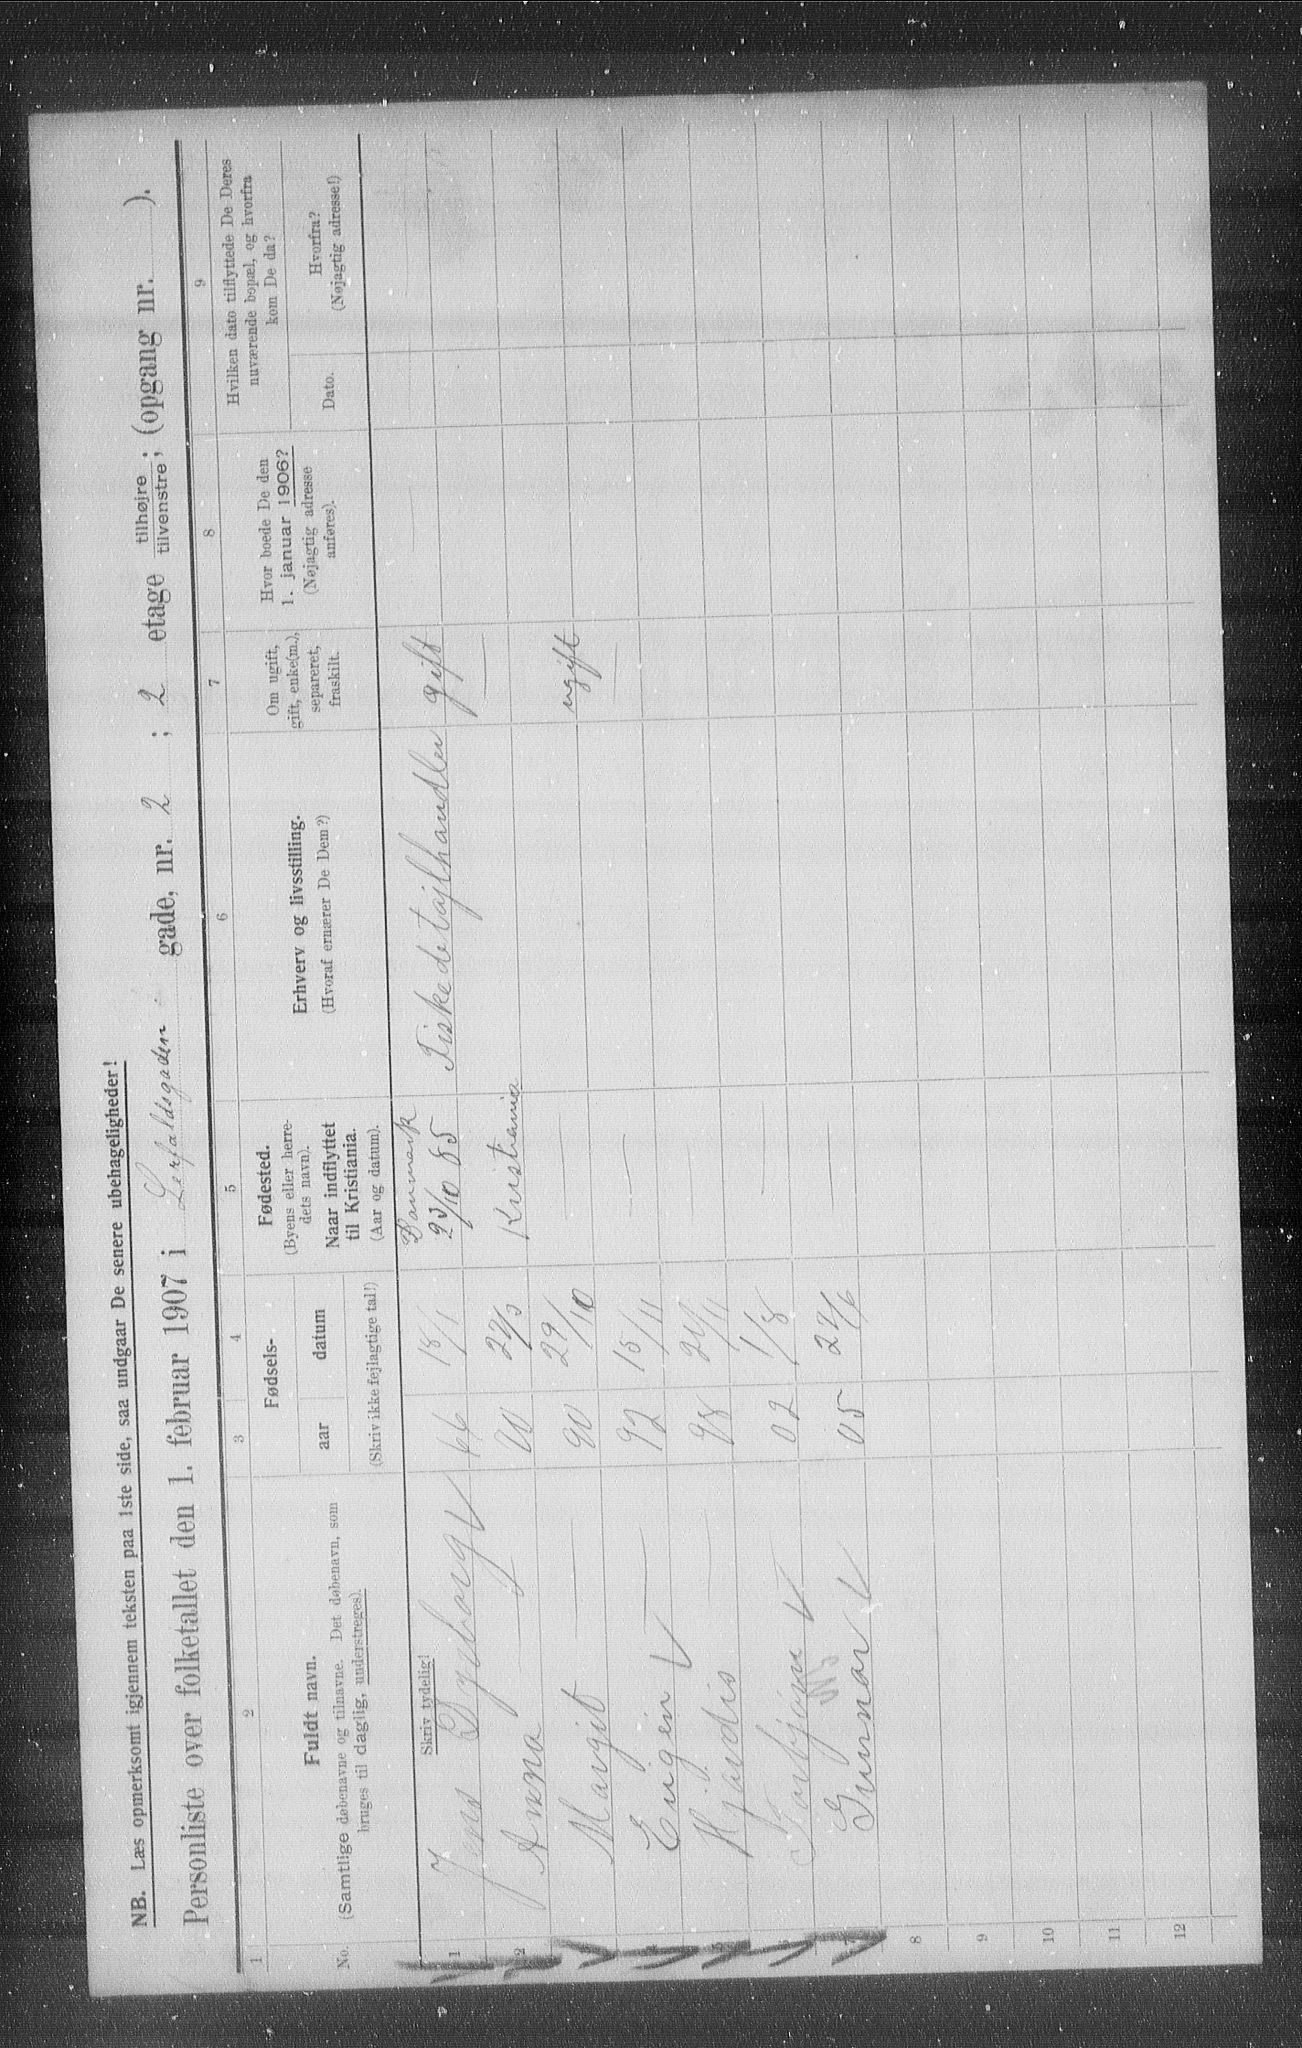 NB. Læs opmerksomt igjennem teksten paa 1ste side, saa undgaar De senere ubehageligheder!
Personliste over folketallet den 1. februar 1907 i Lerfaldsgaden gade, nr. 2 ; 2 etage tilhøjre tilvenstre; (opgang nr. ).
1 2 3 4 5 6 7 8 9
No.
Fuldt navn.
(Samtlige døbenavne og tilnavne. Det døbenavn, som
bruges til daglig, understreges).
Fødsels-
aar datum
(Skriv ikke fejlagtige tal!)
Fødested.
(Byens eller herre-
dets navn).
Naar indflyttet
til Kristiania.
(Aar og datum).
Erhverv og livsstilling.
(Hvoraf ernærer De Dem?)
Om ugift,
gift, enke(m.),
separeret,
fraskilt.
Hvor boede De den
1. januar 1906?
(Nøjagtig adresse
anføres).
Hvilken dato tilflyttede De Deres
nuværende bopæl, og hvorfra
kom De da?
Dato.
Hvorfra?
(Nøjagtig adresse!)
Skriv tydelig!
1 Jens Dyeborg 66 18/1 Danmark Fiskedetajlhandler gift
2 Anna — Kristiania —
3 Margit — 90 29/10 — ugift
4 Eugen — 92 15/11 — —
5 Hjørdis — 98 —
6 Torbjørn 02 1/8 —
7 Gunnar 05 —
8
9
10
11
12